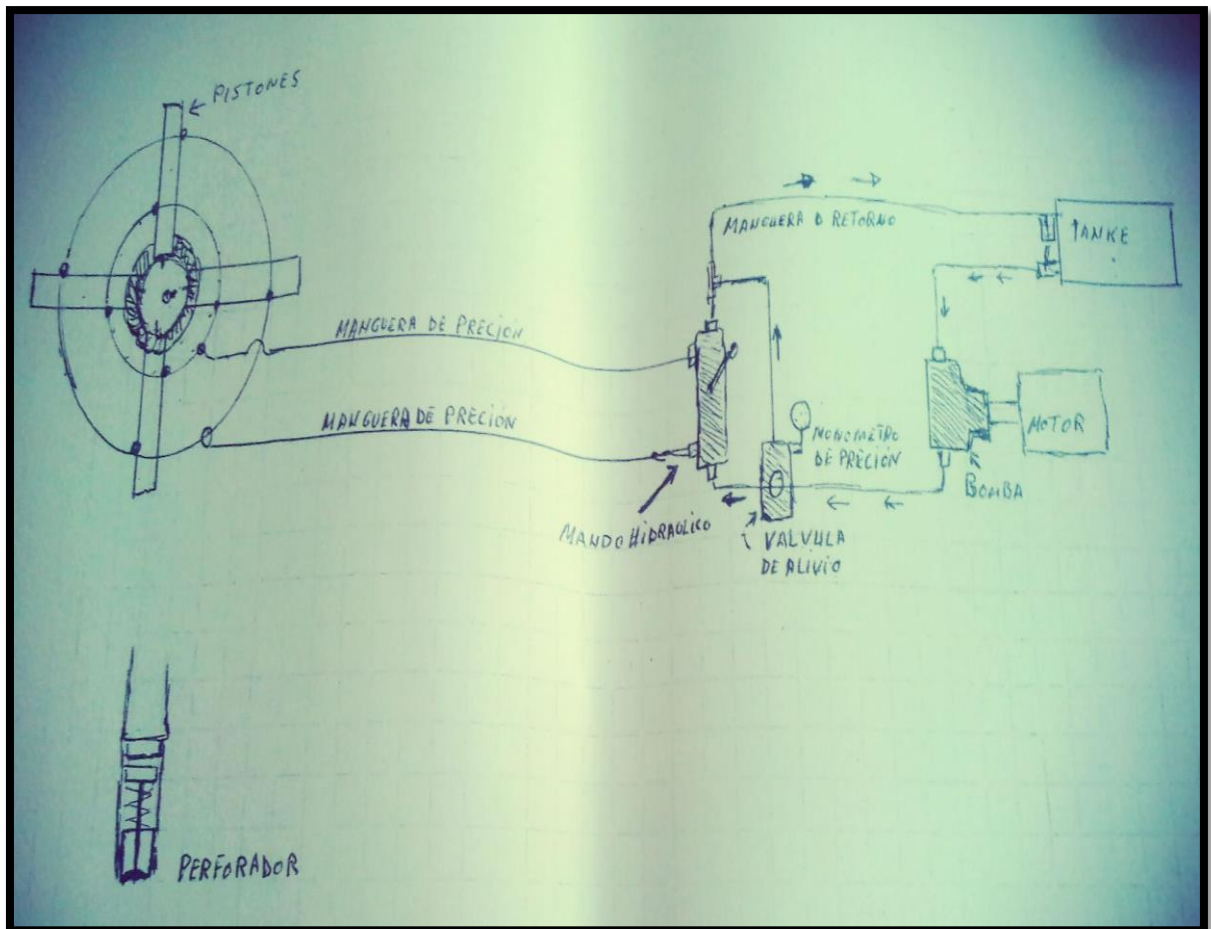 PISTONES
MANGUERA D RETORNO
TANKE
MANGUERA DE PRECIÓN
MANGUERA DE PRECIÓN
MONOMETRO
DE PRECIÓN
MOTOR
BOMBA
MANDO HIDRAOLICO
VALVULA
DE ALIVIO
PERFORADOR